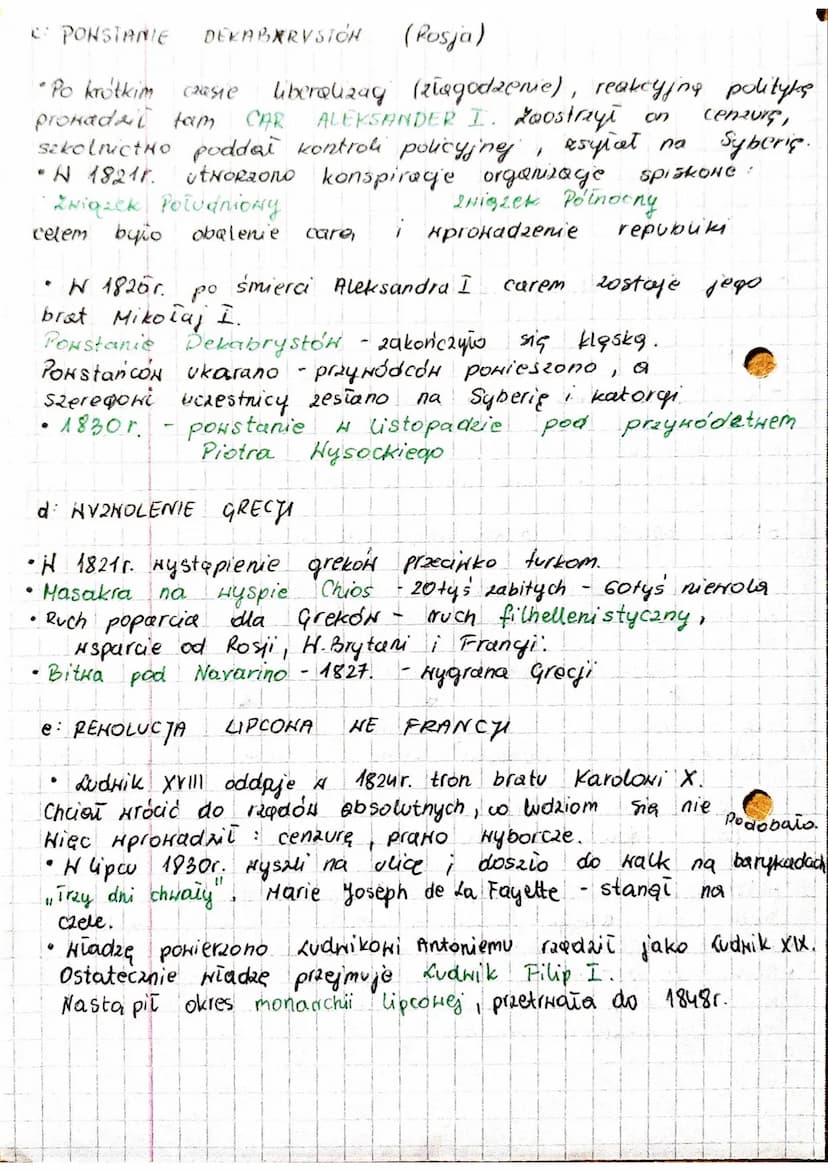 c: POWSTANIE DEKABARYSTÓW (Rosja)
• Po krótkim czasie liberalizacji (złagodzenie), reakcyjną politykę
prowadził tam CAR ALEKSANDER I. Zaostrzył on cenzurę,
szkolnictwo poddał kontroli policyjnej, zsyłał na Syberię.
• W 1821r. utworzono konspiracje organizacje spiskowe:
Związek Południowy Związek Północny
celem było obalenie cara i wprowadzenie republiki
• W 1825r. po śmierci Aleksandra I carem zostaje jego
brat Mikołaj I.
Powstanie Dekabrystów - zakończyło się klęską.
Powstańców ukarano - przywódców powieszono, a
szeregowi uczestnicy zesłano na Syberię i katorgi
• 1830r. - powstanie w listopadzie pod przywództwem
Piotra Wysockiego
d: WYZWOLENIE GRECJI
• W 1821r. wystąpienie greków przeciwko turkom.
• Masakra na wyspie Chios - 20tyś zabitych - 60tyś niewola
• Ruch poparcia dla Greków - ruch filhellenistyczny,
wsparcie od Rosji, W.Brytani i Francji.
• Bitwa pod Navarino - 1827. - wygrana Grecji
e: REWOLUCJA LIPCOWA WE FRANCJI
• Ludwik XVIII oddaje w 1824r. tron bratu Karolowi X.
Chciał wrócić do rządów absolutnych, co ludziom się nie podobało.
Więc wprowadził: cenzurę, prawo wyborcze.
• W lipcu 1930r. wyszli na ulicę i doszło do walk na barykadach
„Trzy dni chwały". Marie Joseph de La Fayette - stanął na
czele.
• Władzę powierzono Ludwikowi Antoniemu rządził jako Ludwik XIX.
Ostatecznie władzę przejmuje Ludwik Filip I.
Nastąpił okres monarchii lipcowej, przetrwała do 1848r.